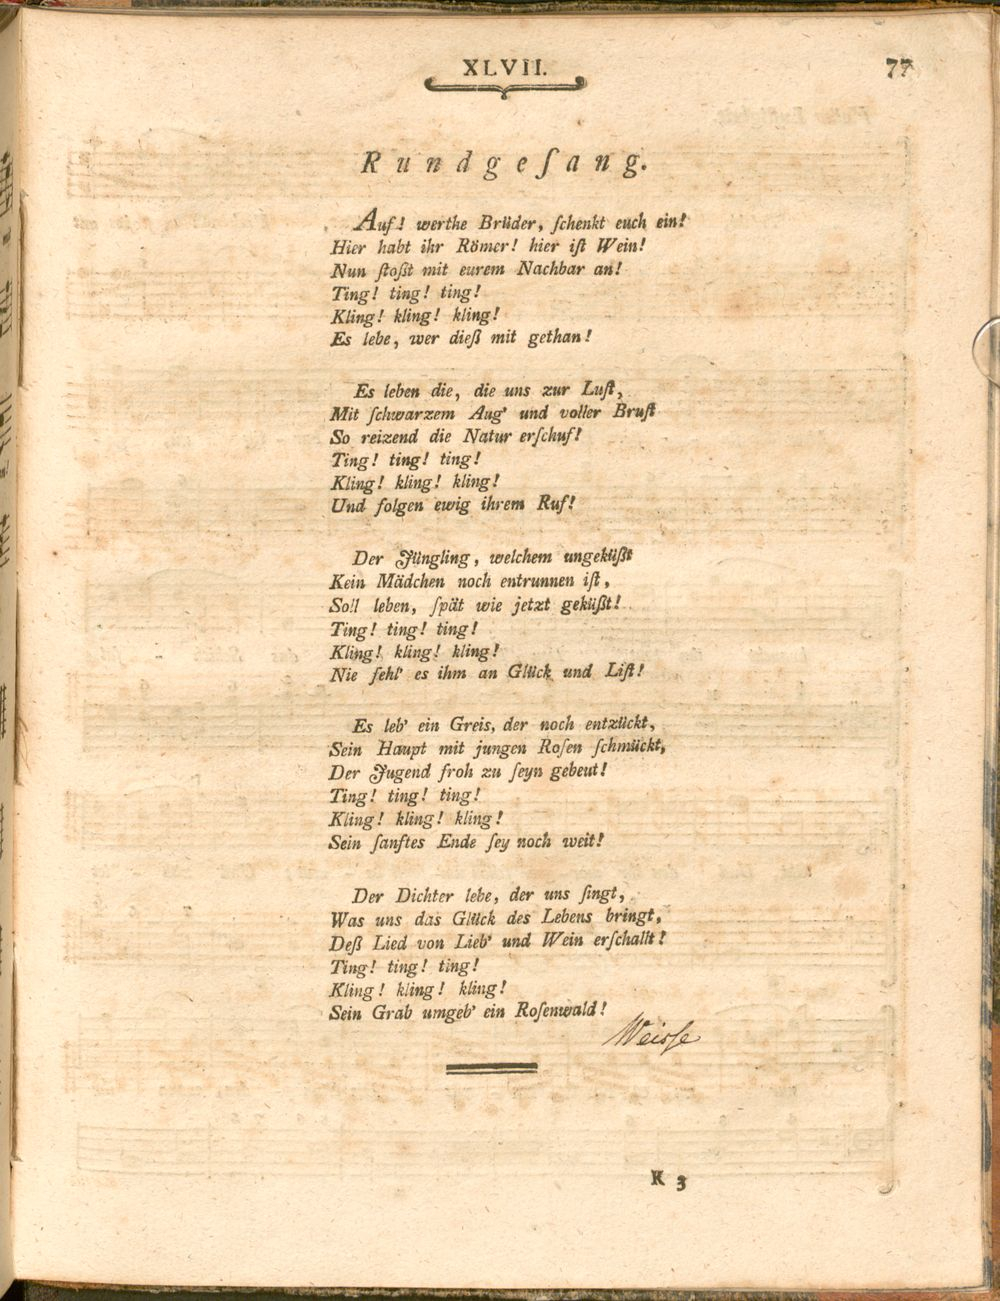 XLVII.
77
Rundgeſang.
Auf! werthe Brüder, ſchenkt euch ein!
Hier habt ihr Römer! hier iſt Wein!
Nun ſtoßt mit eurem Nachbar an!
Ting! ting! ting!
Kling! kling! kling!
Es lebe, wer dieß mit gethan!
Es leben die, die uns zur Luſt,
Mit ſchwarzem Aug' und voller Bruſt
So reizend die Natur erſchuf!
Ting! ting! ting!
Kling! kling! kling!
Und folgen ewig ihrem Ruf!
Der Jüngling, welchem ungeküßt
Kein Mädchen noch entrunnen iſt,
Soll leben, ſpät wie jetzt geküßt!
Ting! ting! ting!
Kling! kling! kling!
Nie fehl' es ihm an Glück und Liſt!
Es leb' ein Greis, der noch entzückt,
Sein Haupt mit jungen Roſen ſchmückt,
Der Jugend froh zu ſeyn gebeut!
Ting! ting! ting!
Kling! kling! kling!
Sein ſanftes Ende ſey noch weit!
Der Dichter lebe, der uns ſingt,
Was uns das Glück des Lebens bringt,
Deß Lied von Lieb' und Wein erſchallt!
Ting! ting! ting!
Kling! kling! kling!
Sein Grab umgeb' ein Roſenwald!
Weisſe
K 3